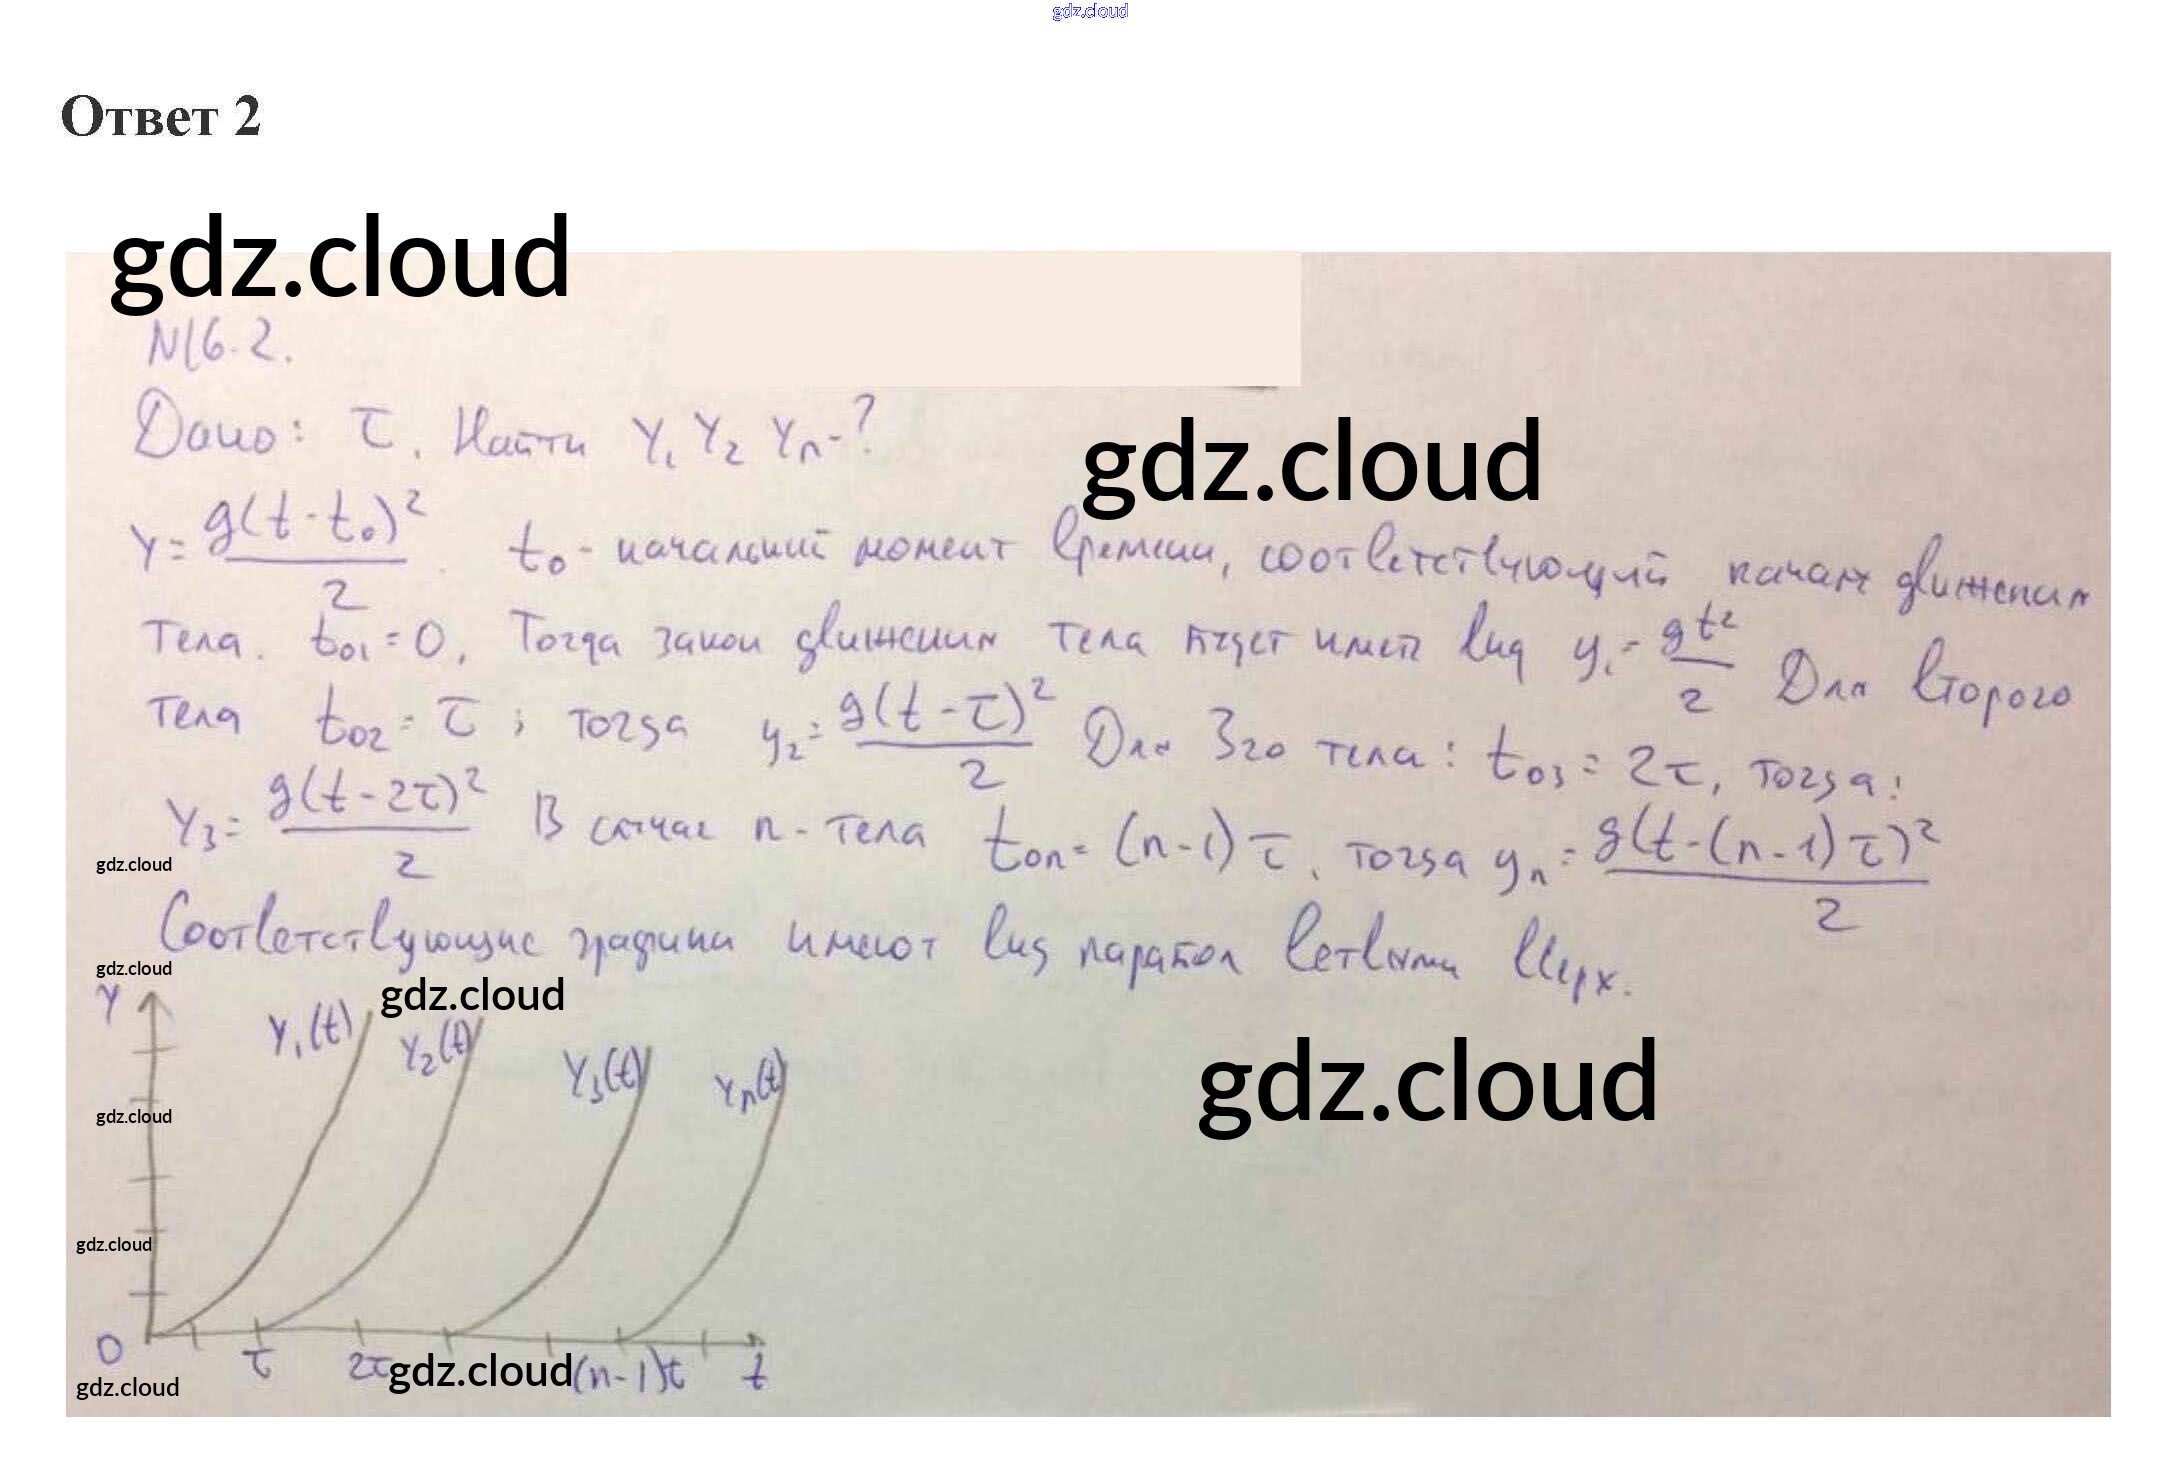 gdz.cloud
Ответ 2
gdz.cloud
N16.2.
Дано: τ. Найти Y₁ Y₂ Yₙ-?
gdz.cloud
Y = g(t-t₀)²/2. t₀ - начальный момент времени, соответствующий началу движения
тела. t₀₁ = 0, Тогда закон движения тела будет иметь вид y₁ = gt²/2 Для второго
тела t₀₂ = τ; тогда y₂ = g(t-τ)²/2 Для 3го тела: t₀₃ = 2τ, тогда:
Y₃ = g(t-2τ)²/2 В случае n-тела t₀ₙ = (n-1)τ, тогда yₙ = g(t-(n-1)τ)²/2
gdz.cloud
Соответствующие графики имеют вид парабол ветвями вверх.
gdz.cloud
gdz.cloud
Y
Y₁(t) Y₂(t) Y₃(t) Yₙ(t)
gdz.cloud
gdz.cloud
gdz.cloud
0 τ 2τ (n-1)τ t
gdz.cloud
gdz.cloud